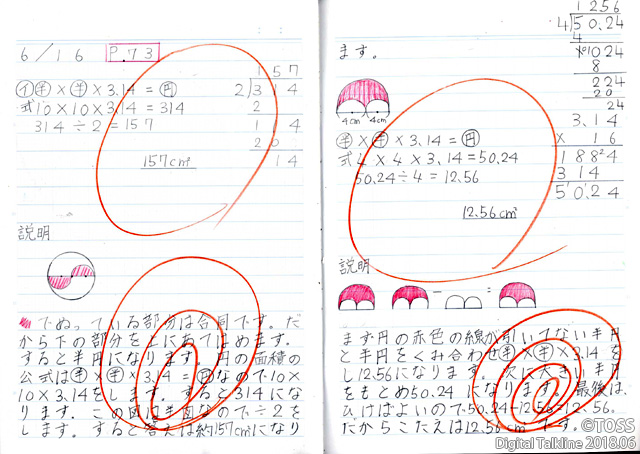 6/16 P.73
㋑半×半×3.14=円
式10×10×3.14=314
314÷2=157
157cm²
157
2)314
2
114
20
14
説明
でぬっている部分は合同です。だ
から下の部分を上にあてはめます。
すると半円になります。円の面積の
公式は半×半×3.14=円なので10×
10×3.14をします。すると314にな
ります。この図は半円なので÷2を
します。すると答えは約157cm²になり
ます。
4cm 4cm
半×半×3.14=円
式4×4×3.14=50.24
50.24÷4=12.56
12.56cm²
1256
4)50.24
4
1024
8
224
20
24
3.14
×16
1884
314
50.24
説明
- =
まず円の赤色の線が引いてない半円
と半円をくみ合わせ半×半×3.14を
し12.56になります。次に大きい半円
をもとめ50.24になります。最後は、
ひけばよいので50.24-12.56=12.56。
だからこたえは12.56cm²です。
©TOSS
Digital Talkline 2018.06